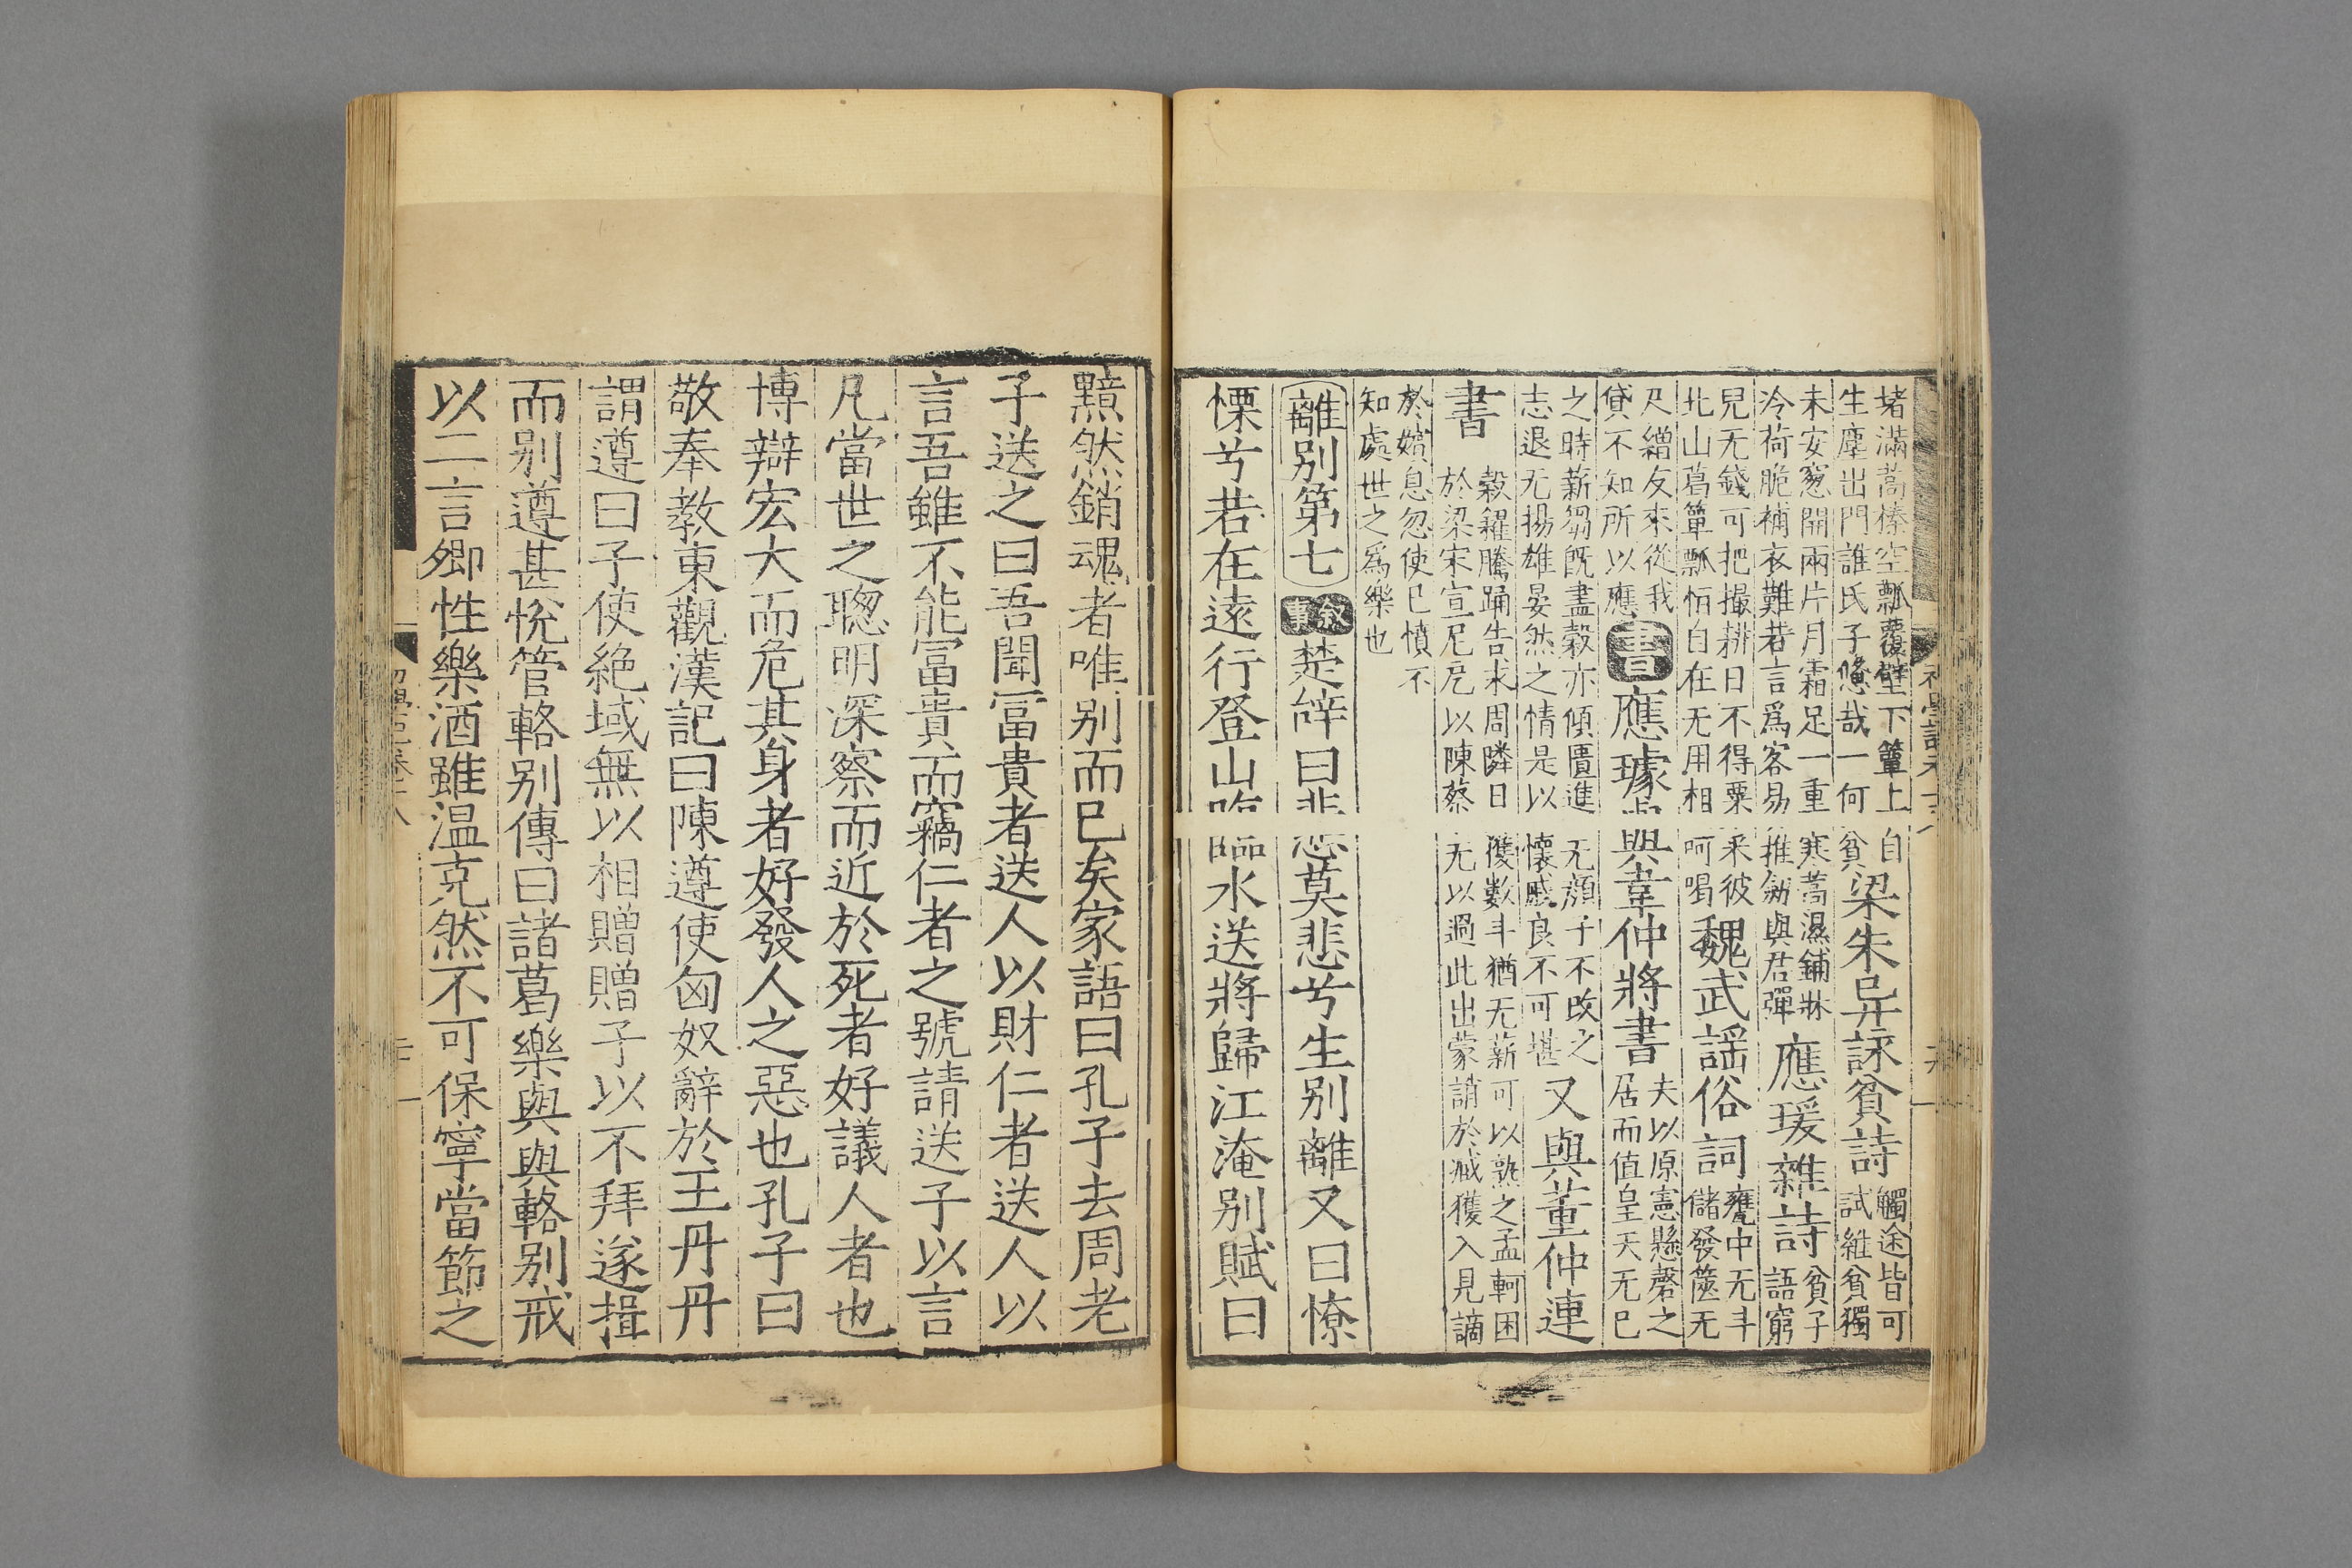 堵滿蒿榛空瓢覆壁下簞上自
生塵出門誰氏子憊哉一何貧梁朱异詠貧詩觸途皆可
試維貧獨
未安窓開兩片月霜足一重寒蒿濕鋪牀
冷荷脆補衣難若言爲客易推劒與君彈應璩雜詩貧子
語窮
兒无錢可把撮耕日不得粟采彼
北山葛簞瓢恒自在无用相呵喝魏武謡俗詞甕中无斗
儲發篋无
尺繒友來從我
貸不知所以應書應璩與韋仲將書夫以原憲懸磬之
居而值皇天无已
之時薪芻旣盡穀亦傾匱進无顔子不改之
志退无揚雄晏然之情是以懷慼良不可堪又與董仲連
書穀糴騰踊告求周隣日獲數斗猶无薪可以熟之孟軻困
於梁宋宣尼厄以陳蔡无以過此出蒙誚於臧獲入見謫
於嬪息忽使已憤不
知處世之爲樂也
離别第七叙事楚辤曰悲莫悲兮生别離又曰憭
慄兮若在遠行登山臨水送將歸江淹别賦曰
黯然銷魂者唯别而已矣家語曰孔子去周老
子送之曰吾聞冨貴者送人以財仁者送人以
言吾雖不能冨貴而竊仁者之號請送子以言
凡當世之聰明深察而近於死者好議人者也
博辯宏大而危其身者好發人之惡也孔子曰
敬奉教東觀漢記曰陳遵使匈奴辭於王丹丹
謂遵曰子使絶域無以相贈贈子以不拜遂揖
而别遵甚恱管輅别傳曰諸葛樂與與輅别戒
以二言卿性樂酒雖温克然不可保寧當節之